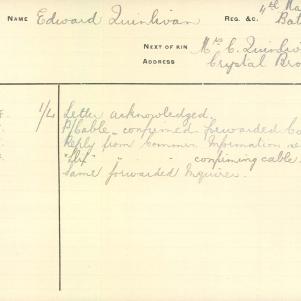 NAME Edward Quinlivan REG. &C. 4th Ma
Bat
NEXT OF KIN Mrs C. Quinliv
ADDRESS Crystal Bro
1/4 Letter acknowledged.
P/Cable confirmed forwarded Co
Reply from Common Information re
" " confirming cable.
Same forwarded Inquirer.